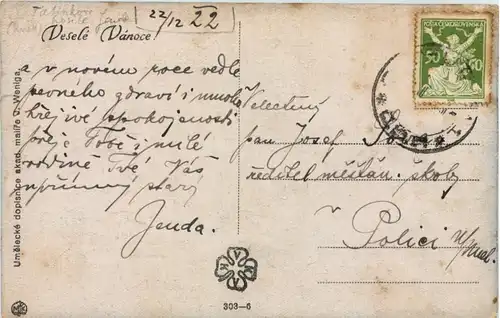 22/12 22
Veselé Vánoce!
a v novém roce vedle
pevného zdraví i mnoho
hřejivé spokojenosti
přeje Tobě i milé
rodině Tvé Váš
upřímný starý
Jenda.
Velectěný
pan Josef
ředitel měšťan. školy
v
Polici n/Met.
POŠTA ČESKOSLOVENSKÁ
50 50
Umělecké dopisnice akad. malíře V. Weniga.
303-6